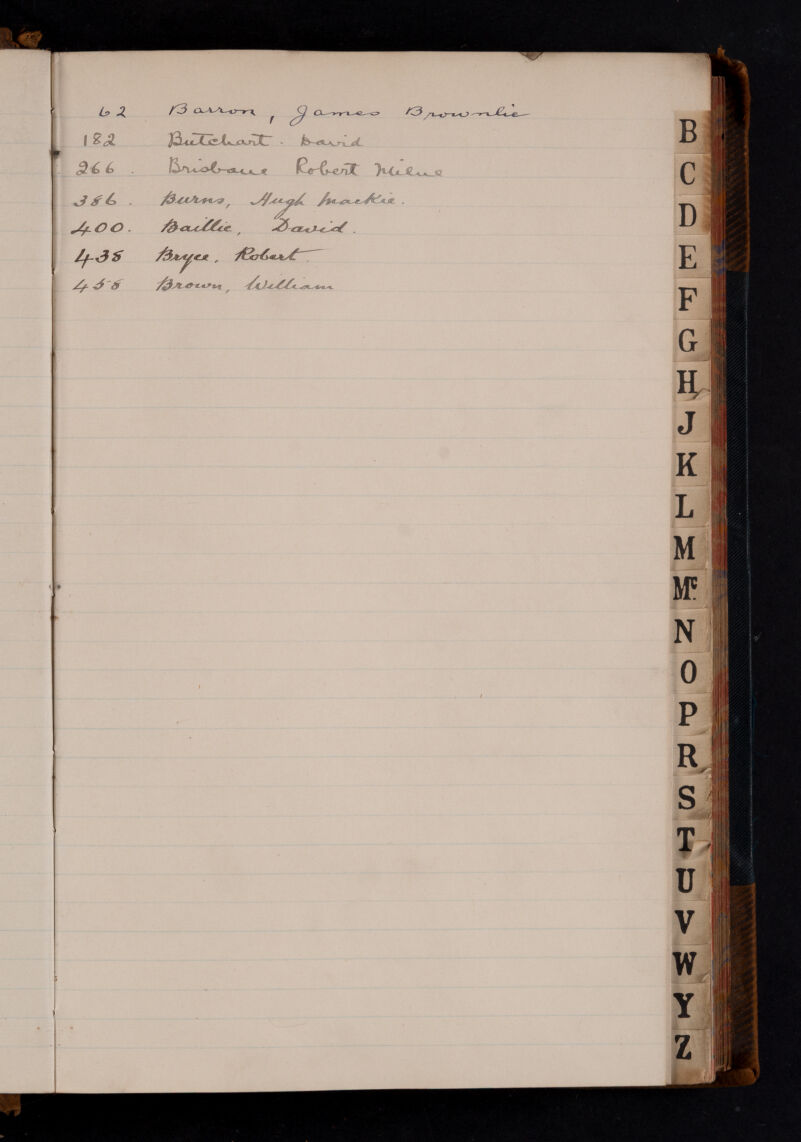 62 Barron, James Brownlie
182 Butchart. David
266. Brisbane Robert Milne
386. Burns, Hugh Mackie.
400. Baillie, David.
438 Bryce, Robert.
458 Brown, William
B
C
D
E
F
G
H
J
K
L
M
Mc
N
O
P
R
S
T
U
V
W
Y
Z